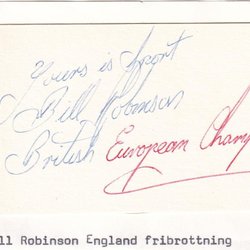 Yours is Sport
Bill Robinson
British European Champ
ll Robinson England fribrottning